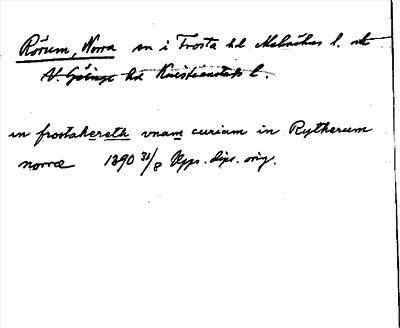 Rörum, Norra sn i Frosta hd Malmöhus l. ok
N. Göinge hd Kristianstads l.
in frostahereth vnam curiam in Rytherum
norræ 1390 31/8 Upps. dipl. orig.